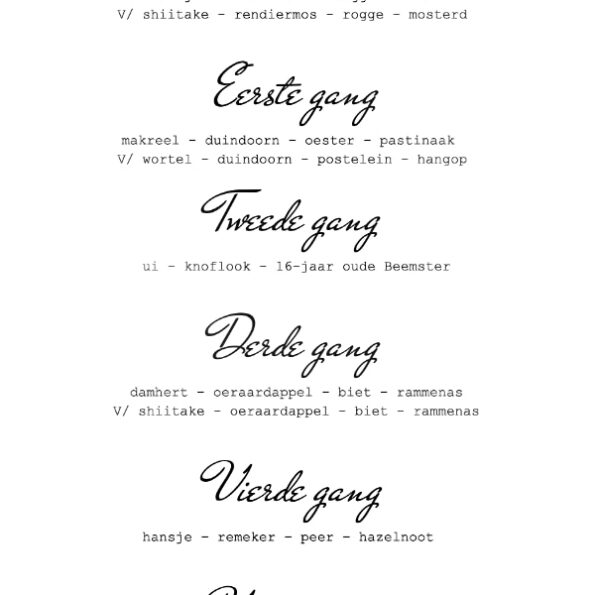 V/ shiitake - rendiermos - rogge - mosterd
Eerste gang
makreel - duindoorn - oester - pastinaak
V/ wortel - duindoorn - postelein - hangop
Tweede gang
ui - knoflook - 16-jaar oude Beemster
Derde gang
damhert - oeraardappel - biet - rammenas
V/ shiitake - oeraardappel - biet - rammenas
Vierde gang
hansje - remeker - peer - hazelnoot